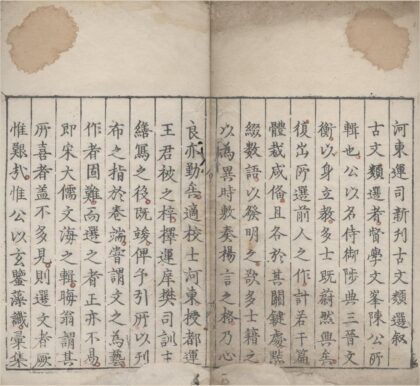 河東運司新刋古文類選敘
古文類選者督學文峯陳公所
輯也公以名侍御陟典三晉文
衡以身立教多士既蔚然興矣
復出所選前人之作計若干篇
體裁咸俻且各於其關鍵處點
綴數語以發明之欲多士籍之
以為異時敷奏揚言之格乃心
良亦勤矣適校士河東授都運
王君被之梓檡運庠樊司訓士
繕寫之後既竣俾予引所以刋
布之指於卷端嘗謂文之為藝
作者固難而選之者正亦不易
即宋大儒文海之輯晦翁謂其
所喜者盖不多見則選文者厥
惟艱哉惟公以玄鑒藻識彚集